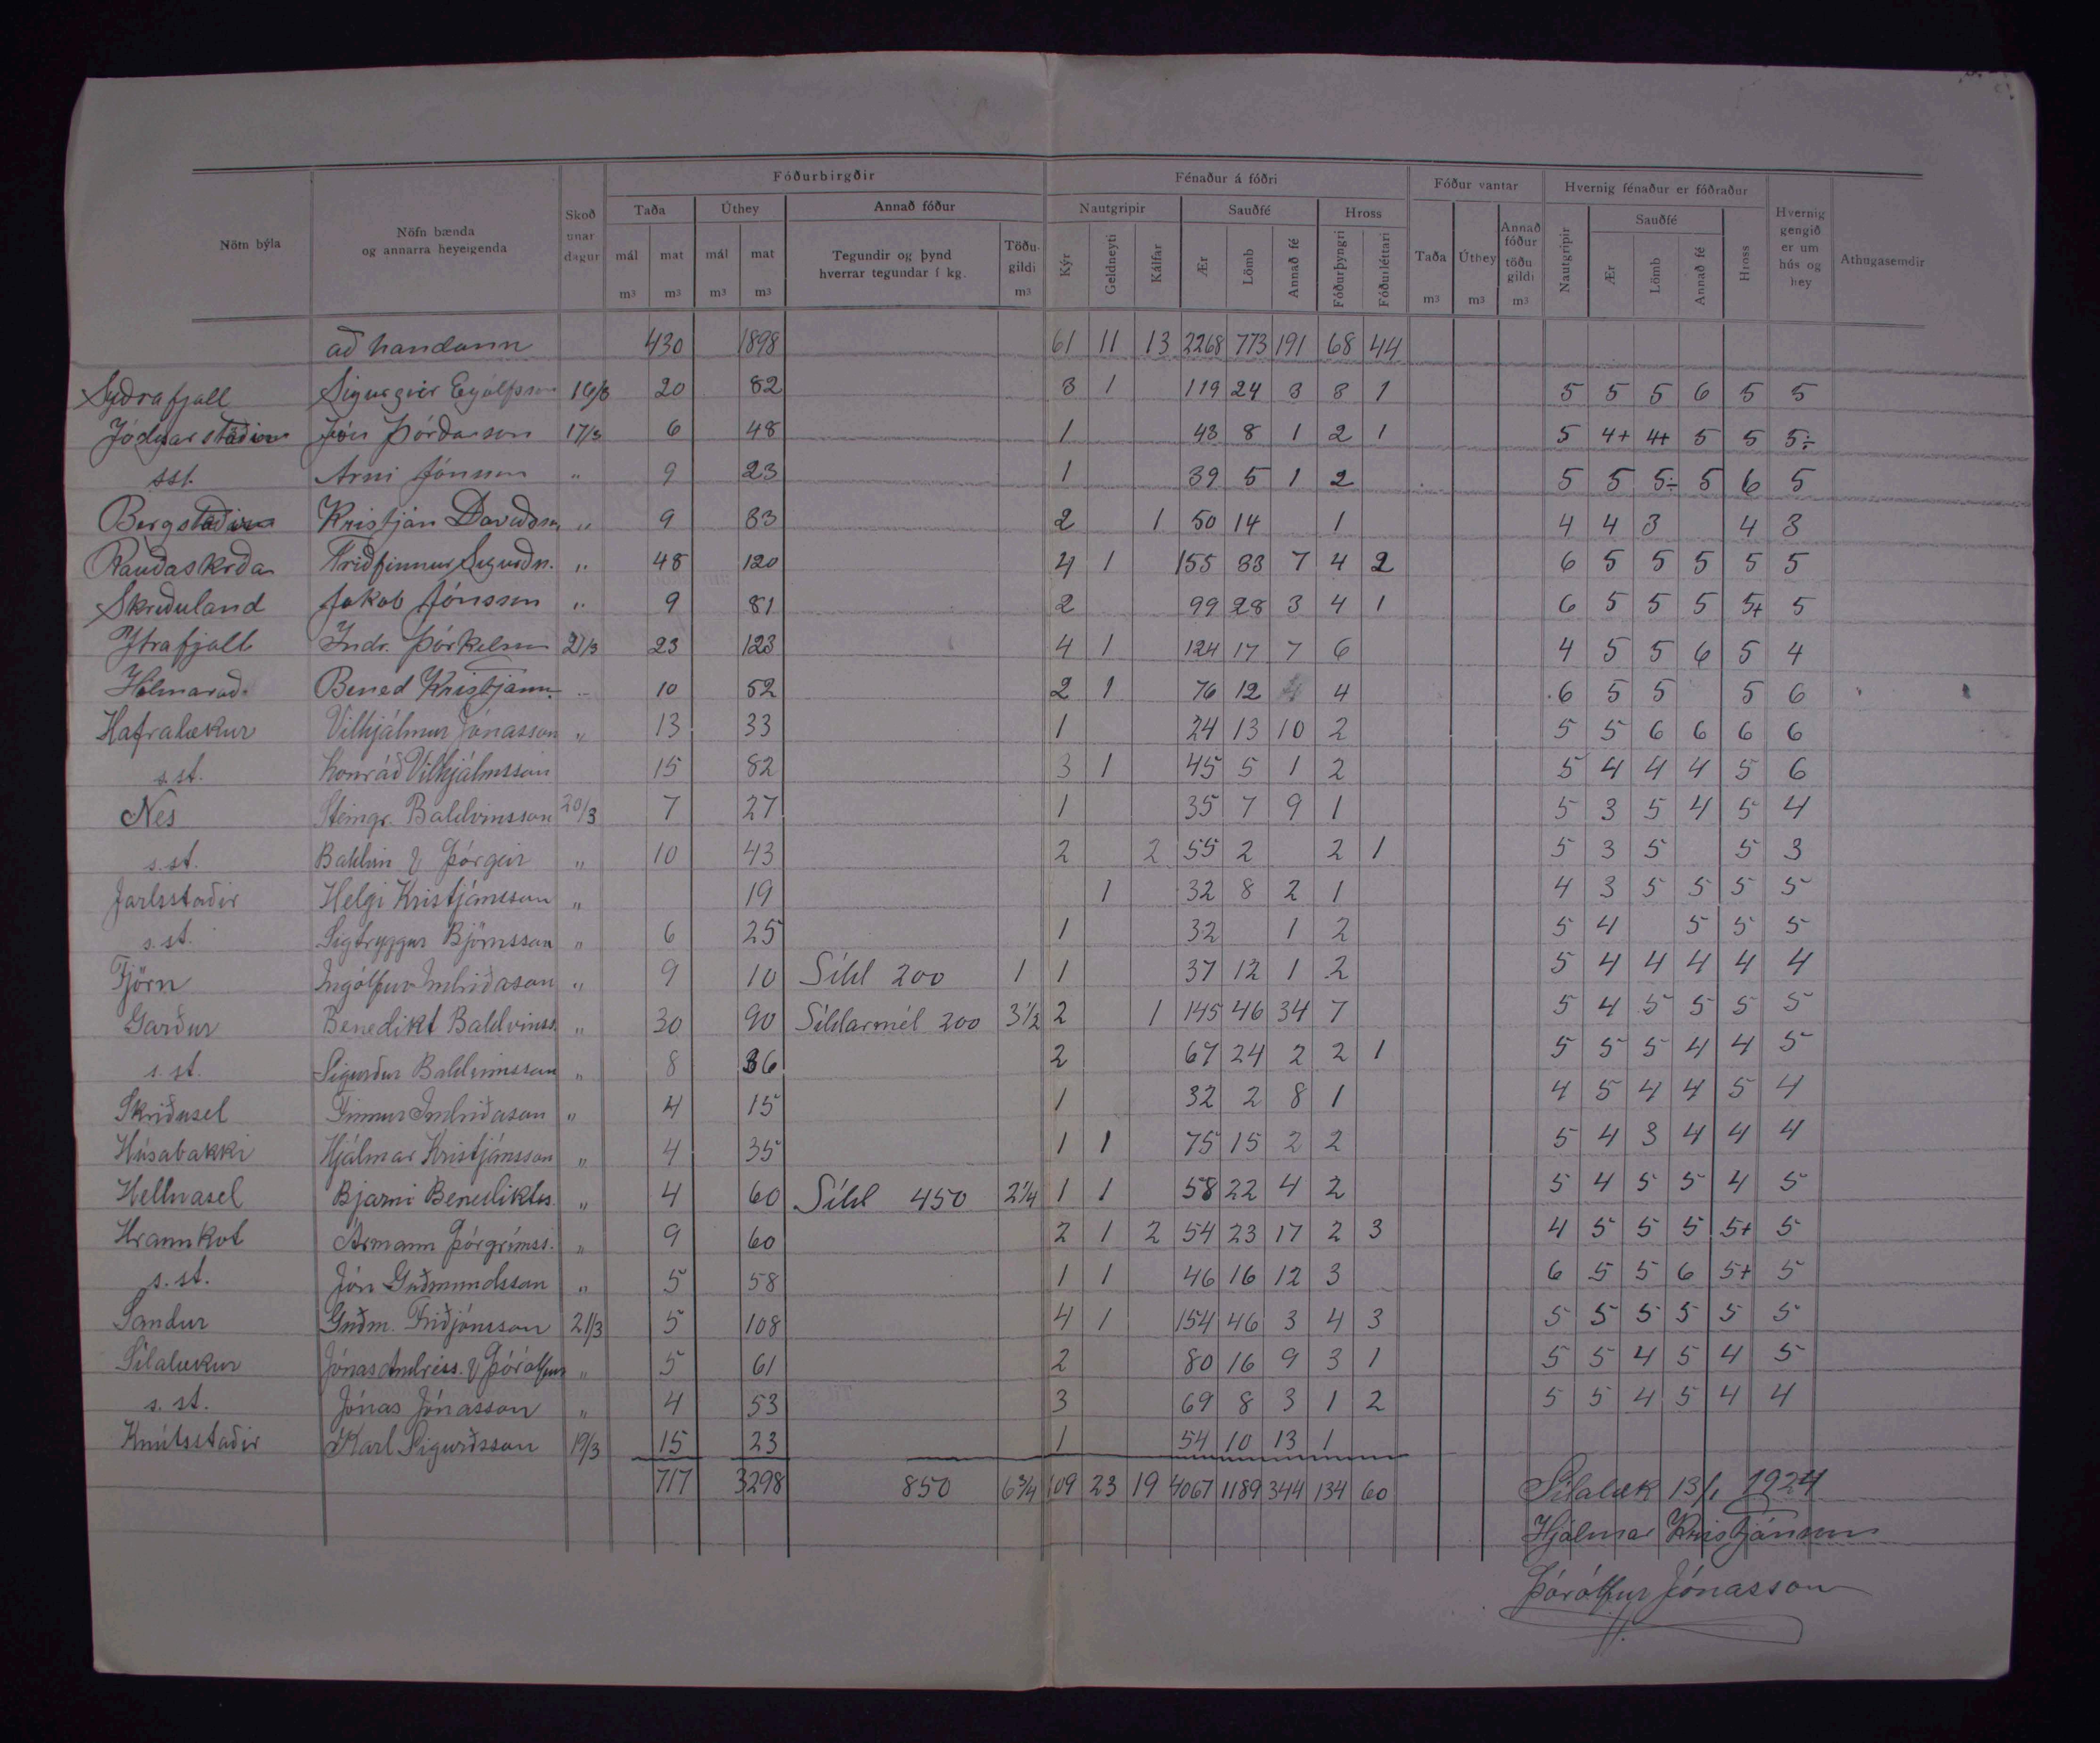 Fóðurbirgðir Fénaður á fóðri Fóður vantar Hvernig fénaður er fóðraður
Nöfn býla Nöfn bænda og annarra heyeigenda Skoðunardagur Taða Úthey Annað fóður Nautgripir Sauðfé Hross Taða Úthey Annað fóður töðugildi Nautgripir Sauðfé Hross Hvernig gengið er um hús og hey Athugasemdir
mál mat mál mat Tegundir og þynd hverrar tegundar í kg. Töðugildi Kýr Geldneyti Kálfar Ær Lömb Annað fé Fóðurþyngri Fóðurléttari Ær Lömb Annað fé
m³ m³ m³ m³ m³ m³ m³ m³
að handann 430 1898 61 11 13 2268 773 191 68 44
Syðrafjall Sigurgeir 16/3 20 82 3 1 119 24 3 8 1 5 5 5 6 5 5
Jón Þórðarson 17/3 6 48 1 43 8 1 2 1 5 4+ 4+ 5 5 5÷
sst. Arni Jónsson " 9 23 1 39 5 1 2 5 5 5÷ 5 6 5
Bergstaðir Kristján Davíðsn " 9 83 2 1 50 14 1 4 4 3 4 3
Friðfinnur Sigurðs. " 48 120 4 1 155 33 7 4 2 6 5 5 5 5 5
Skriðuland Jakob Jónsson " 9 81 2 99 28 3 4 1 6 5 5 5 5+ 5
Ytrafjall Indr. Þórkelsson 21/3 23 123 4 1 124 17 7 6 4 5 5 6 5 4
Hólmavað Bened Kristjánss. " 10 52 2 1 76 12 4 6 5 5 5 6
Hafralækur Vilhjálmur Jónasson " 13 33 1 24 13 10 2 5 5 6 6 6 6
s.st. Konráð Vilhjálmsson 15 82 3 1 45 5 1 2 5 4 4 4 5 6
Nes Steingr. Baldvinsson 20/3 7 27 1 35 7 9 1 5 3 5 4 5 4
s.st. Baldvin & Þórgeir " 10 43 2 2 55 2 2 1 5 3 5 5 3
Jarlsstaðir Helgi Kristjánsson " 19 1 32 8 2 1 4 3 5 5 5 5
s.st. Sigtryggur Björnsson " 6 25 1 32 1 2 5 4 5 5 5
Tjörn Ingólfur Indriðason " 9 10 Síld 200 1 1 37 12 1 2 5 4 4 4 4 4
Garður Benedikt Baldvinss. " 30 90 Síldarmél 200 3½ 2 1 145 46 34 7 5 4 5 5 5 5
s.st. Sigurður Baldvinsson " 8 36 2 67 24 2 2 1 5 5 5 4 4 5
Skriðusel Finnur Indriðason " 4 15 1 32 2 8 1 4 5 4 4 5 4
Húsabakki Hjálmar Kristjánsson " 4 35 1 1 75 15 2 2 5 4 3 4 4 4
Hellnasel Bjarni Benedikts. " 4 60 Síld 450 2¼ 1 1 58 22 4 2 5 4 5 5 4 5
Hraunkot Ármann Þórgrímss. " 9 60 2 1 2 54 23 17 2 3 4 5 5 5 5+ 5
s.st. Jón Guðmundsson " 5 58 1 1 46 16 12 3 6 5 5 6 5+ 5
Sandur Guðm. Friðjónsson 21/3 5 108 4 1 154 46 3 4 3 5 5 5 5 5 5
Sílalækur Jónas Andréss. & Þórólfur " 5 61 2 80 16 9 3 1 5 5 4 5 4 5
s.st. Jónas Jónasson " 4 53 3 69 8 3 1 2 5 5 4 5 4 4
Knútsstaðir Karl Sigurðsson 19/3 15 23 1 54 10 13 1
717 3298 850 6¾ 109 23 19 4067 1189 344 134 60
Sílalæk 13/1 1924
Hjálmar Kristjánsson
Þórólfur Jónasson